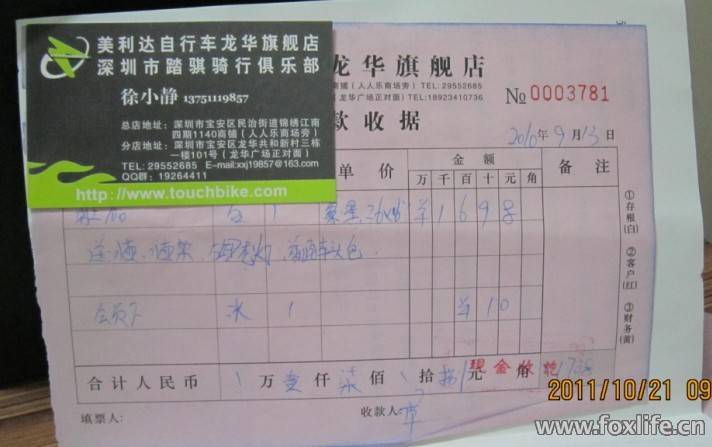 美利达自行车龙华旗舰店
深圳市踏骐骑行俱乐部
徐小静 13751119857
总店地址：深圳市宝安区民治街道锦绣江南
四期1140商铺（人人乐商场旁）
分店地址：深圳市宝安区龙华共和新村三栋
一楼101号（龙华广场正对面）
TEL: 29552685 E-mail:xxj19857@163.com
QQ群: 19264411
http://www.touchbike.com
龙华旗舰店
商铺（人人乐商场旁）TEL: 29552685
（龙华广场正对面）TEL:18923410736
№ 0003781
款收据
2010年9月13日
单价 金额 备注
万 千 百 十 元 角
1 26
1 6 9 8
会员卡 1 1 0
合计人民币 万 壹 仟 柒 佰 拾 捌 元 角
现金收讫
填票人： 收款人：
①存根(白)
②客户(红)
③财务(黄)
2011/10/21 09
www.foxlife.cn